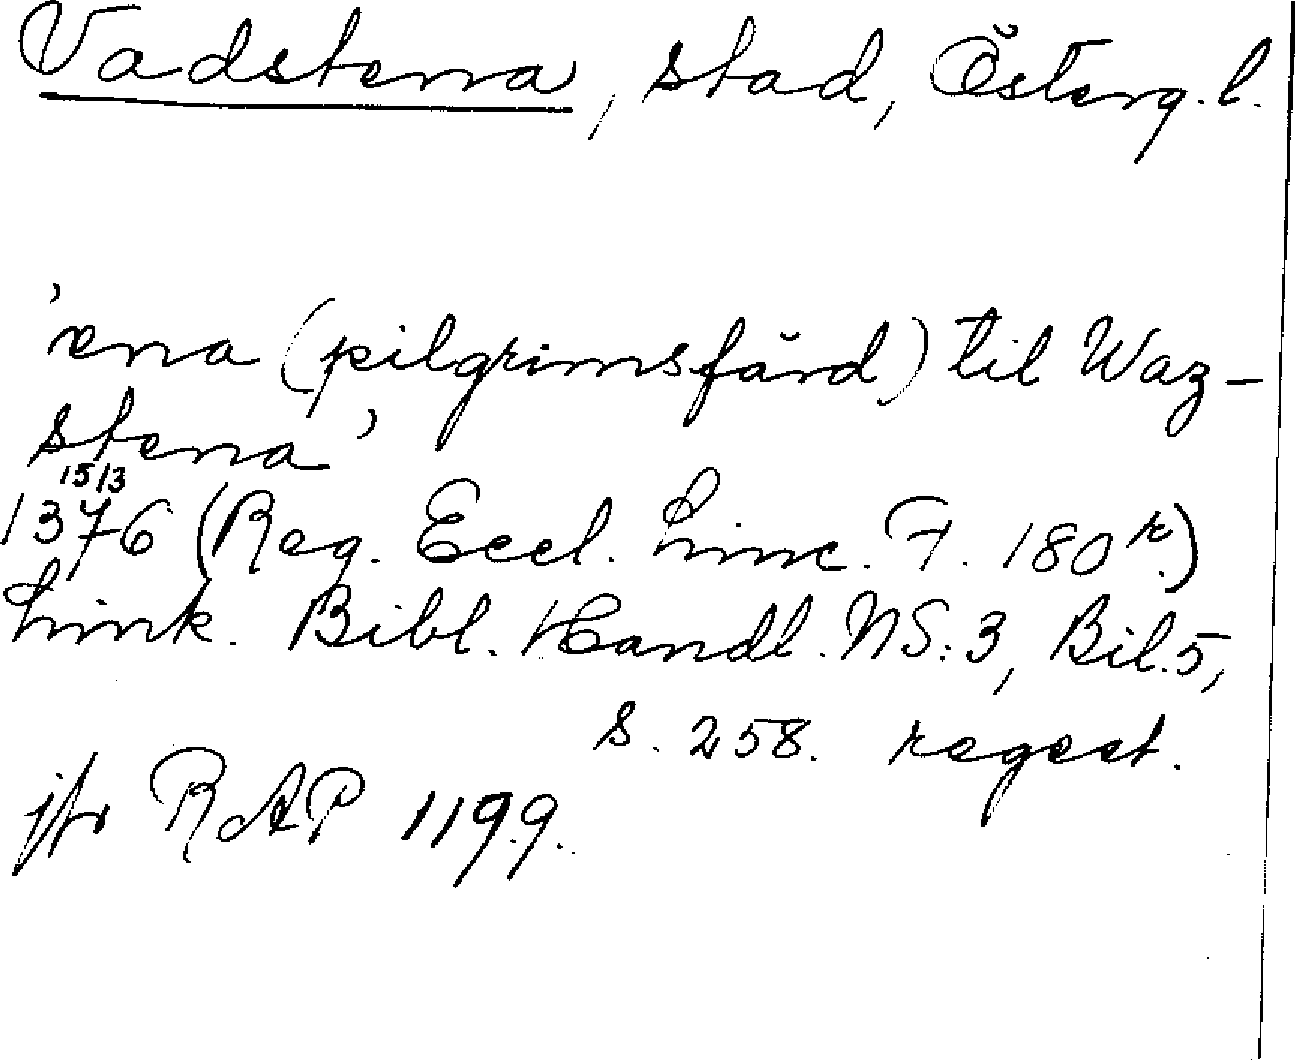 Vadstena, stad, Österg. l.
'ena (pilgrimsfärd) til Waz-
stena'
15/3
1376 (Reg. Eccl. Linc. F. 180 r.)
Link. Bibl. Handl. NS: 3, Bil. 5,
s. 258. regest.
jfr RAP 1199.